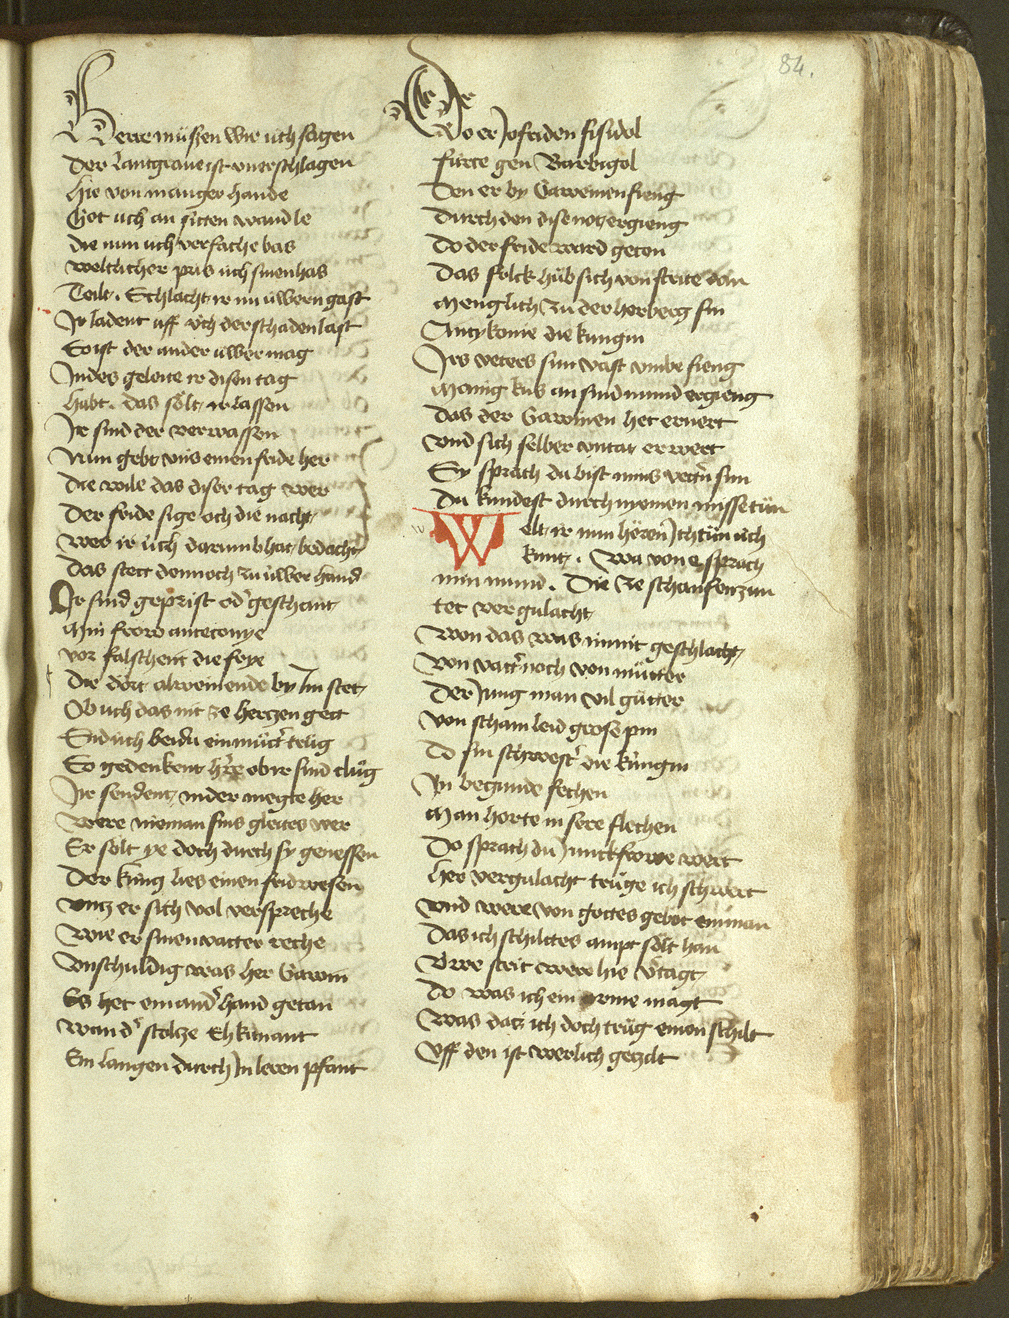 84.
Herre müssen wir üch sagen
Der lantgraue ist vnerschlagen
hie von mänger hande
Got üch an sitten wandle
die nun üch verfache bas
weltlicher pris üch sinen has
Teilt. Schlacht ir nu üwern gast
Ir ladent uff üch der schaden last
So ist der ander üwer mag
Indes geleite ir disen tag
habt. das sölt ir lassen
Ir sind der verwassen
Nun gebt vns einen fride her
Die wile das diser tag wer
Der fride sige och die nacht
Wes ir üch darumb hat bedacht
Das stett dennoch zu üwer hand
Ir sind geprist od geschant
Min frow antikonye
vor falscheit die frye
Die dört alweinende by Im stet
Ob üch das nit ze hertzen gett
Sid üch beidu ein mütter telig
So gedenkent herre ob ir sind clüg
Ir sendent, in der megte her
Were nieman sins gleites wer
Er sölt ye doch durch sy genessen
Der küng lies einen frid wesen
vntz er sich vol verspreche
Wie er sinen vatter reche
Vnschuldig was her Gawin
Es het ein and hand getan
Wan d stoltze Ehkunant
Ein lantzen durch In leren pfant
Do er Jofriden fisidol
fürte gen Barbigol
Den er by Gaweinen fieng
Durch den dise not ergieng
Do der fride ward geton
Das folck hüb sich von strite dan
Menglich zu der herberg sin
Antykonie die küngin
Irs vetters sun vast vmbe fieng
Manig kus an sind mund ergieng
Das der Gawinen het ernert
vnd sich selber vntat erwert
Sy sprach du bist mins vettern sun
Du kundest durch niemen missetün
Welt ir nun hören Ich tün üch
kunt. Wa von e sprach
min mund. Die ze schanfenzun
tet vergulacht
Won das was in mit geschlacht
Von vatter noch von mütter
Der Jung man vil gütter
von scham leid grose pin
Do sin schwester die küngin
In begunde fechen
Man horte in sere flechen
Do sprach du Junckfrowe wert
her vergulacht trüge ich schwert
vnd were von gottes gebot ein man
Das ich schiltes ampt sölt han
Vwe strit were hie vertagt
Do was ich ein arme magt
Was daz ich doch trüg einen schilt
Vff den ist werlich gezilt